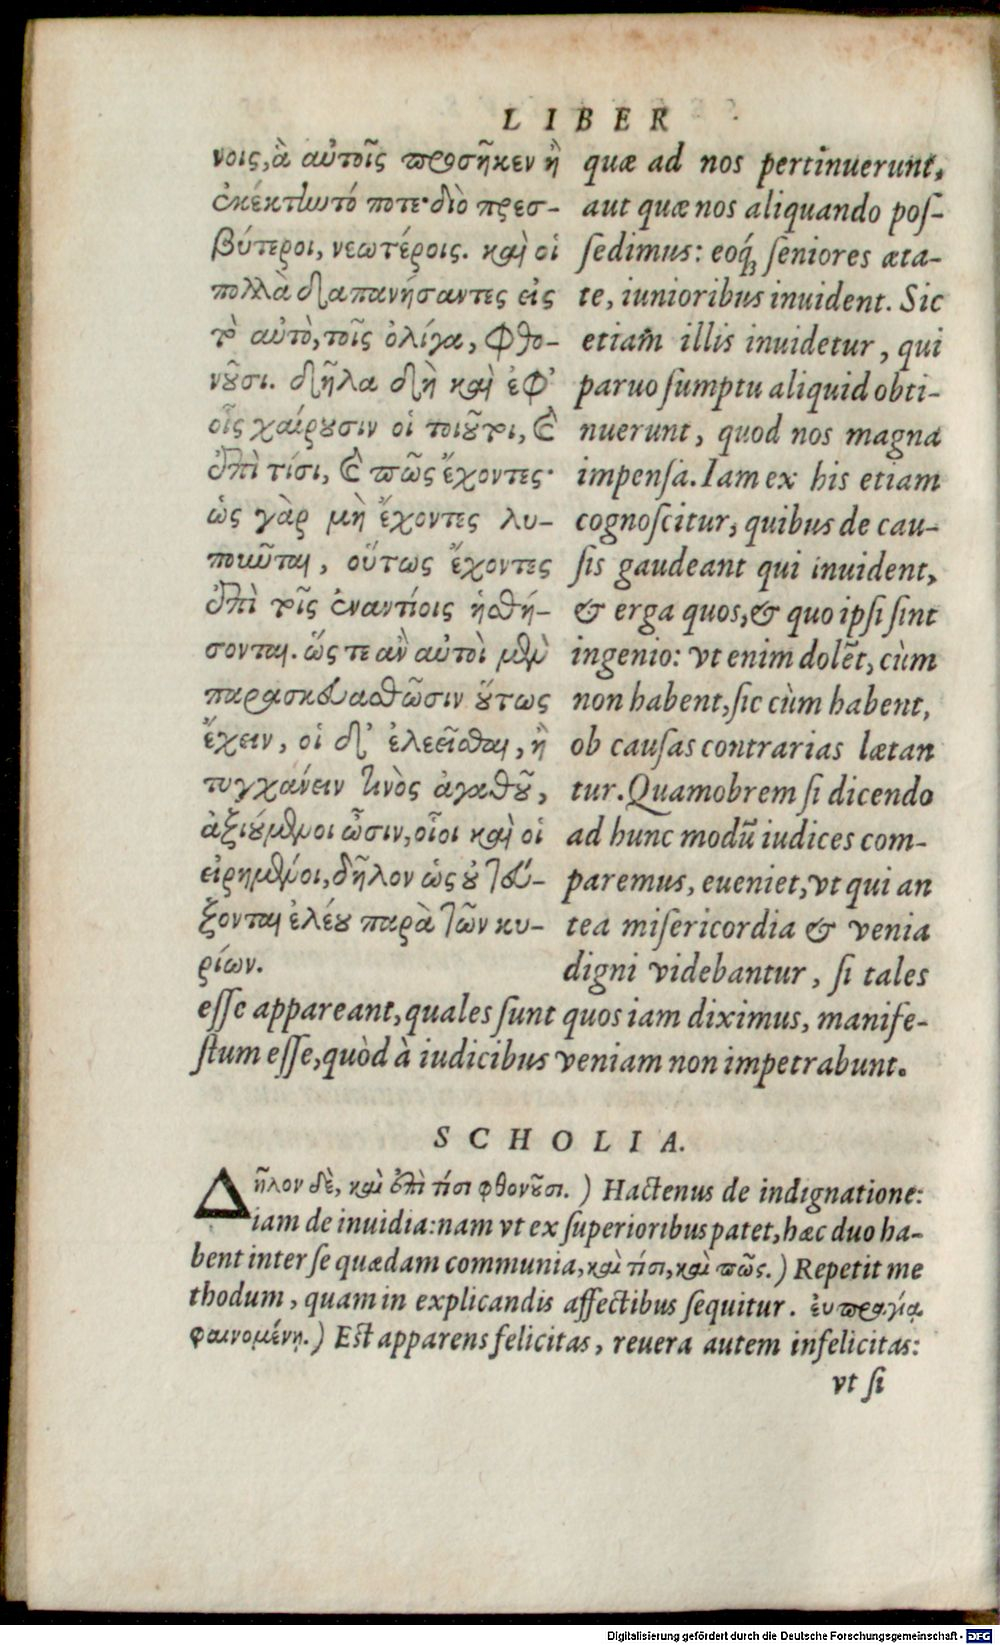 LIBER
νοις, ἃ αὐτοῖς προσῆκεν ἢ
ἐκέκτωτό ποτε· διὸ πρεσ-
βύτεροι, νεωτέροις. καὶ οἱ
πολλὰ δαπανήσαντες εἰς
τὸ αὐτὸ, τοῖς ὀλίγα, φθο-
νοῦσι. δῆλα δὴ καὶ ἐφ’
οἷς χαίρουσιν οἱ τοιοῦτοι, καὶ
ἐπὶ τίσι, καὶ πῶς ἔχοντες·
ὡς γὰρ μὴ ἔχοντες λυ-
ποιῶται, οὕτως ἔχοντες
ἐπὶ τοῖς ἐναντίοις ἡσθή-
σονται. ὥς τε ἂν αὐτοὶ μὲν
παρασκευασθῶσιν οὕτως
ἔχειν, οἱ δ’ ἐλεεῖσθαι, ἢ
τυγχάνειν τινὸς ἀγαθοῦ,
ἀξιούμενοι ὦσιν, οἷοι καὶ οἱ
εἰρημένοι, δῆλον ὡς οὐ τεύ-
ξονται ἐλέου παρὰ τῶν κυ-
ρίων.
quæ ad nos pertinuerunt,
aut quæ nos aliquando pos-
sedimus: eoq́ꝫ seniores æta-
te, iunioribus inuident. Sic
etiam illis inuidetur, qui
paruo sumptu aliquid obti-
nuerunt, quod nos magna
impensa. Iam ex his etiam
cognoscitur, quibus de cau-
sis gaudeant qui inuident,
& erga quos, & quo ipsi sint
ingenio: vt enim dolẽt, cùm
non habent, sic cùm habent,
ob causas contrarias lætan
tur. Quamobrem si dicendo
ad hunc modũ iudices com-
paremus, eueniet, vt qui an
tea misericordia & venia
digni videbantur, si tales
esse appareant, quales sunt quos iam diximus, manife-
stum esse, quòd à iudicibus veniam non impetrabunt.
SCHOLIA.
Δῆλον δὲ, καὶ ἐπὶ τίσι φθονοῦσι.) Hactenus de indignatione:
iam de inuidia: nam vt ex superioribus patet, hæc duo ha-
bent inter se quædam communia, καὶ τίσι, καὶ πῶς.) Repetit me
thodum, quam in explicandis affectibus sequitur. εὐπραγία
φαινομένη.) Est apparens felicitas, reuera autem infelicitas:
vt si
Digitalisierung gefördert durch die Deutsche Forschungsgemeinschaft - DFG